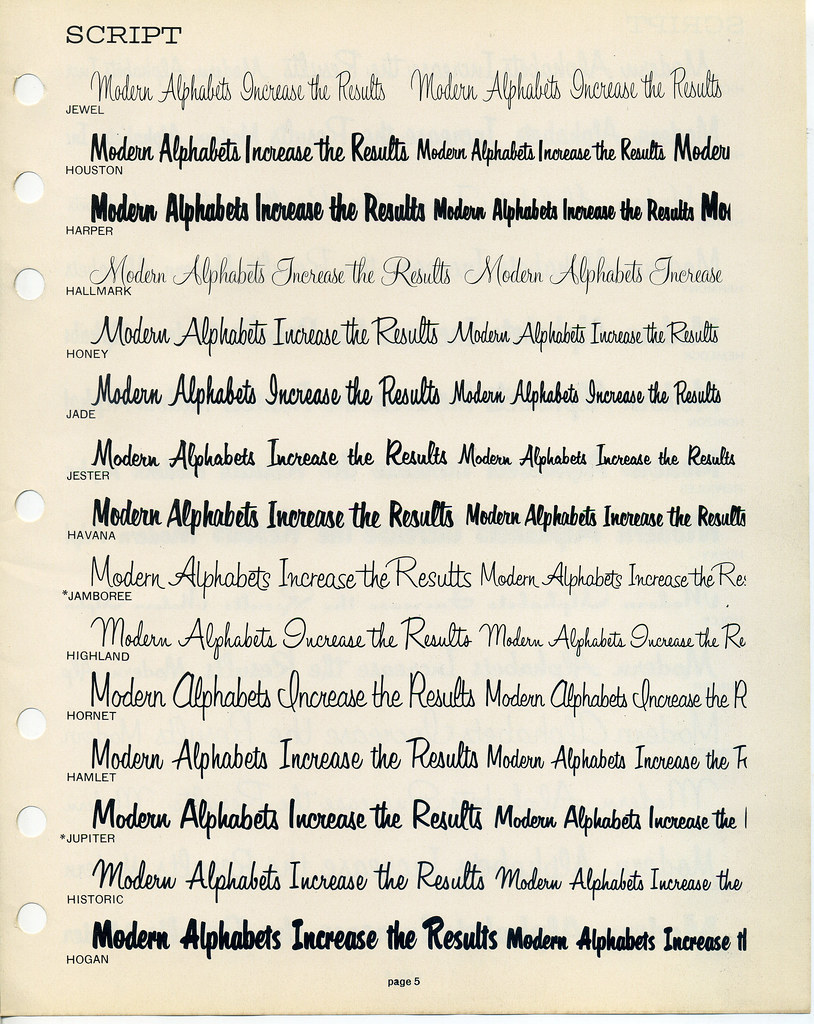 SCRIPT
Modern Alphabets Increase the Results Modern Alphabets Increase the Results
JEWEL
Modern Alphabets Increase the Results Modern Alphabets Increase the Results Modern
HOUSTON
Modern Alphabets Increase the Results Modern Alphabets Increase the Results Mo
HARPER
Modern Alphabets Increase the Results Modern Alphabets Increase
HALLMARK
Modern Alphabets Increase the Results Modern Alphabets Increase the Results
HONEY
Modern Alphabets Increase the Results Modern Alphabets Increase the Results
JADE
Modern Alphabets Increase the Results Modern Alphabets Increase the Results
JESTER
Modern Alphabets Increase the Results Modern Alphabets Increase the Results
HAVANA
Modern Alphabets Increase the Results Modern Alphabets Increase the Re
*JAMBOREE
Modern Alphabets Increase the Results Modern Alphabets Increase the Re
HIGHLAND
Modern Alphabets Increase the Results Modern Alphabets Increase the R
HORNET
Modern Alphabets Increase the Results Modern Alphabets Increase the
HAMLET
Modern Alphabets Increase the Results Modern Alphabets Increase the
*JUPITER
Modern Alphabets Increase the Results Modern Alphabets Increase the
HISTORIC
Modern Alphabets Increase the Results Modern Alphabets Increase
HOGAN
page 5